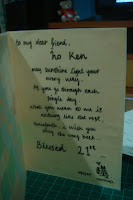 to my dear friend,
Ho Ken
may sunshine light your
every way.
As you go through each
single day.
what you mean to me is
nothing like the rest.
i wish you
the very best.
Blessed 21st